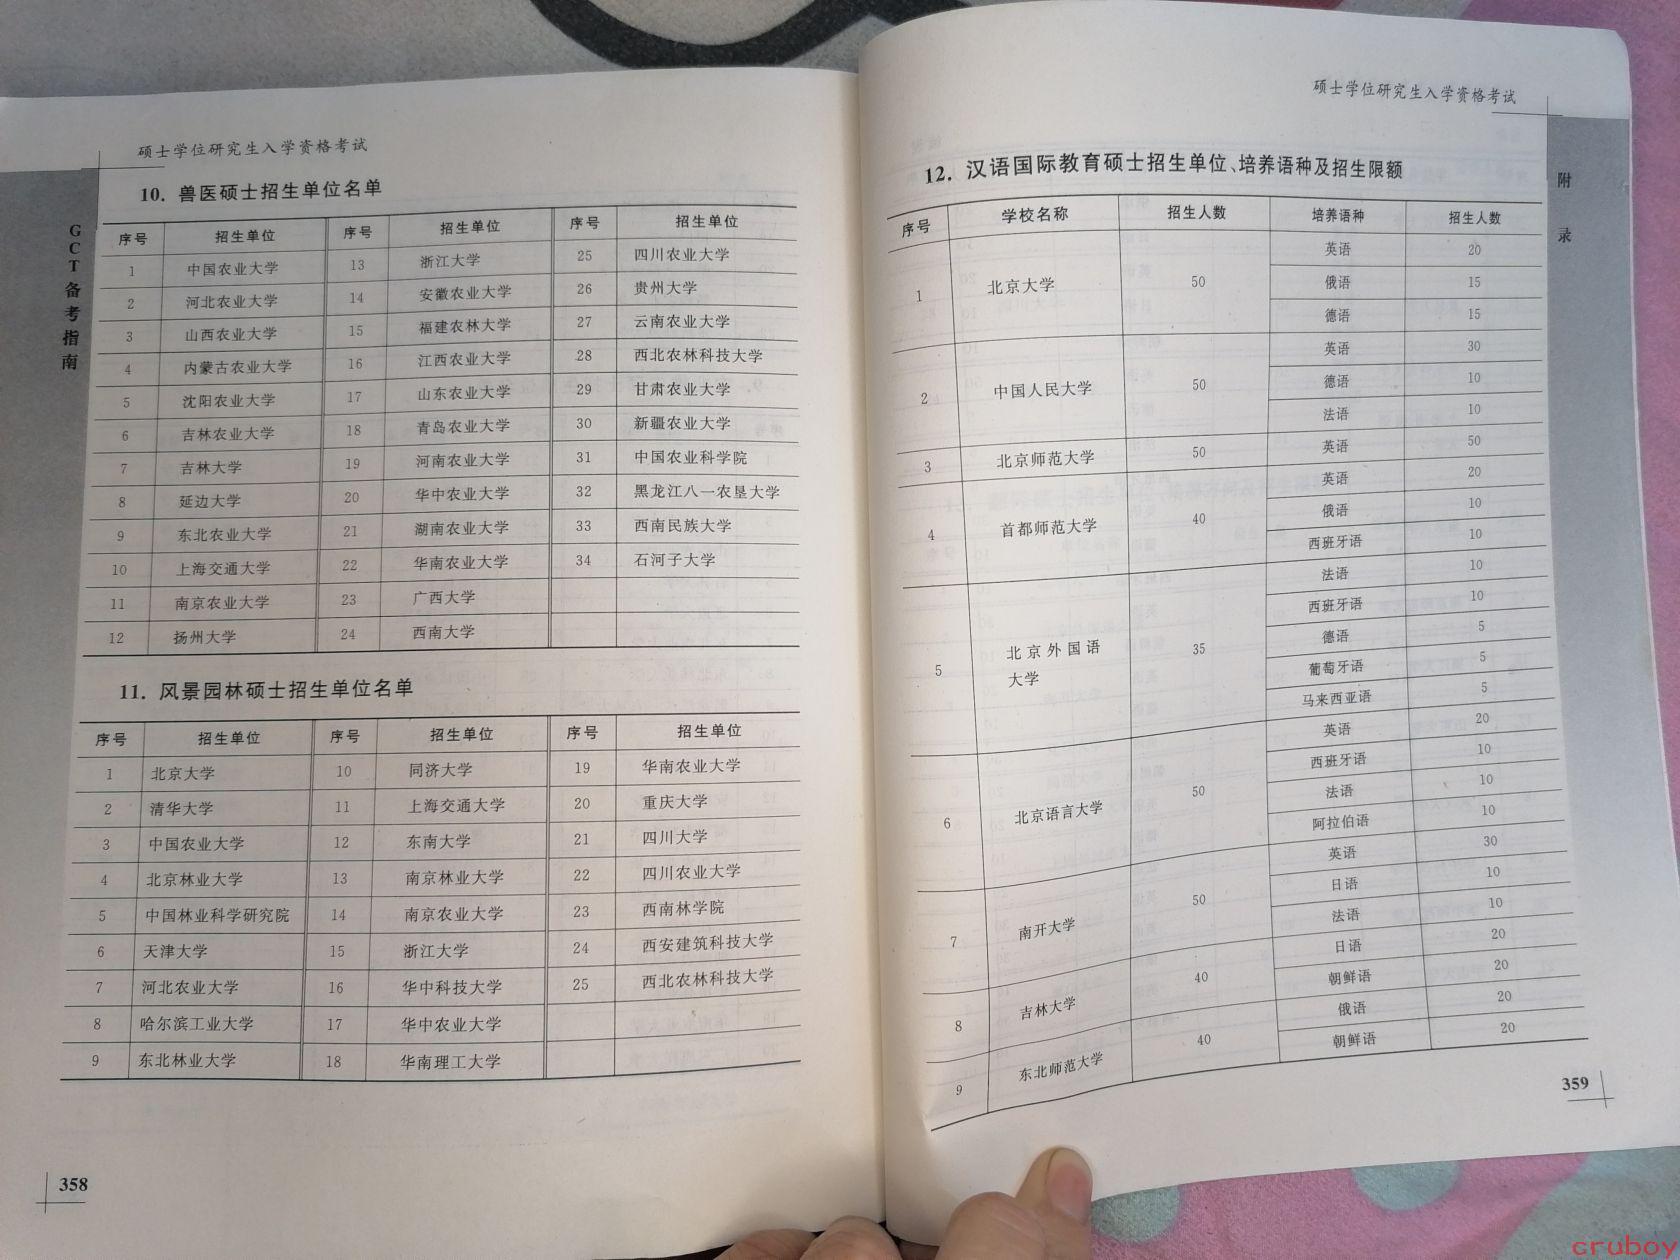 硕士学位研究生入学资格考试
GCT备考指南
10. 兽医硕士招生单位名单
序号 招生单位 序号 招生单位 序号 招生单位
1 中国农业大学 13 浙江大学 25 四川农业大学
2 河北农业大学 14 安徽农业大学 26 贵州大学
3 山西农业大学 15 福建农林大学 27 云南农业大学
4 内蒙古农业大学 16 江西农业大学 28 西北农林科技大学
5 沈阳农业大学 17 山东农业大学 29 甘肃农业大学
6 吉林农业大学 18 青岛农业大学 30 新疆农业大学
7 吉林大学 19 河南农业大学 31 中国农业科学院
8 延边大学 20 华中农业大学 32 黑龙江八一农垦大学
9 东北农业大学 21 湖南农业大学 33 西南民族大学
10 上海交通大学 22 华南农业大学 34 石河子大学
11 南京农业大学 23 广西大学
12 扬州大学 24 西南大学
11. 风景园林硕士招生单位名单
序号 招生单位 序号 招生单位 序号 招生单位
1 北京大学 10 同济大学 19 华南农业大学
2 清华大学 11 上海交通大学 20 重庆大学
3 中国农业大学 12 东南大学 21 四川大学
4 北京林业大学 13 南京林业大学 22 四川农业大学
5 中国林业科学研究院 14 南京农业大学 23 西南林学院
6 天津大学 15 浙江大学 24 西安建筑科技大学
7 河北农业大学 16 华中科技大学 25 西北农林科技大学
8 哈尔滨工业大学 17 华中农业大学
9 东北林业大学 18 华南理工大学
358
硕士学位研究生入学资格考试
附录
12. 汉语国际教育硕士招生单位、培养语种及招生限额
序号 学校名称 招生人数 培养语种 招生人数
1 北京大学 50 英语 20
俄语 15
德语 15
2 中国人民大学 50 英语 30
德语 10
法语 10
3 北京师范大学 50 英语 50
4 首都师范大学 40 英语 20
俄语 10
西班牙语 10
5 北京外国语大学 35 法语 10
西班牙语 10
德语 5
葡萄牙语 5
马来西亚语 5
6 北京语言大学 50 英语 20
西班牙语 10
法语 10
阿拉伯语 10
7 南开大学 50 英语 30
日语 10
法语 10
8 吉林大学 40 日语 20
朝鲜语 20
9 东北师范大学 40 俄语 20
朝鲜语 20
359
cruboy